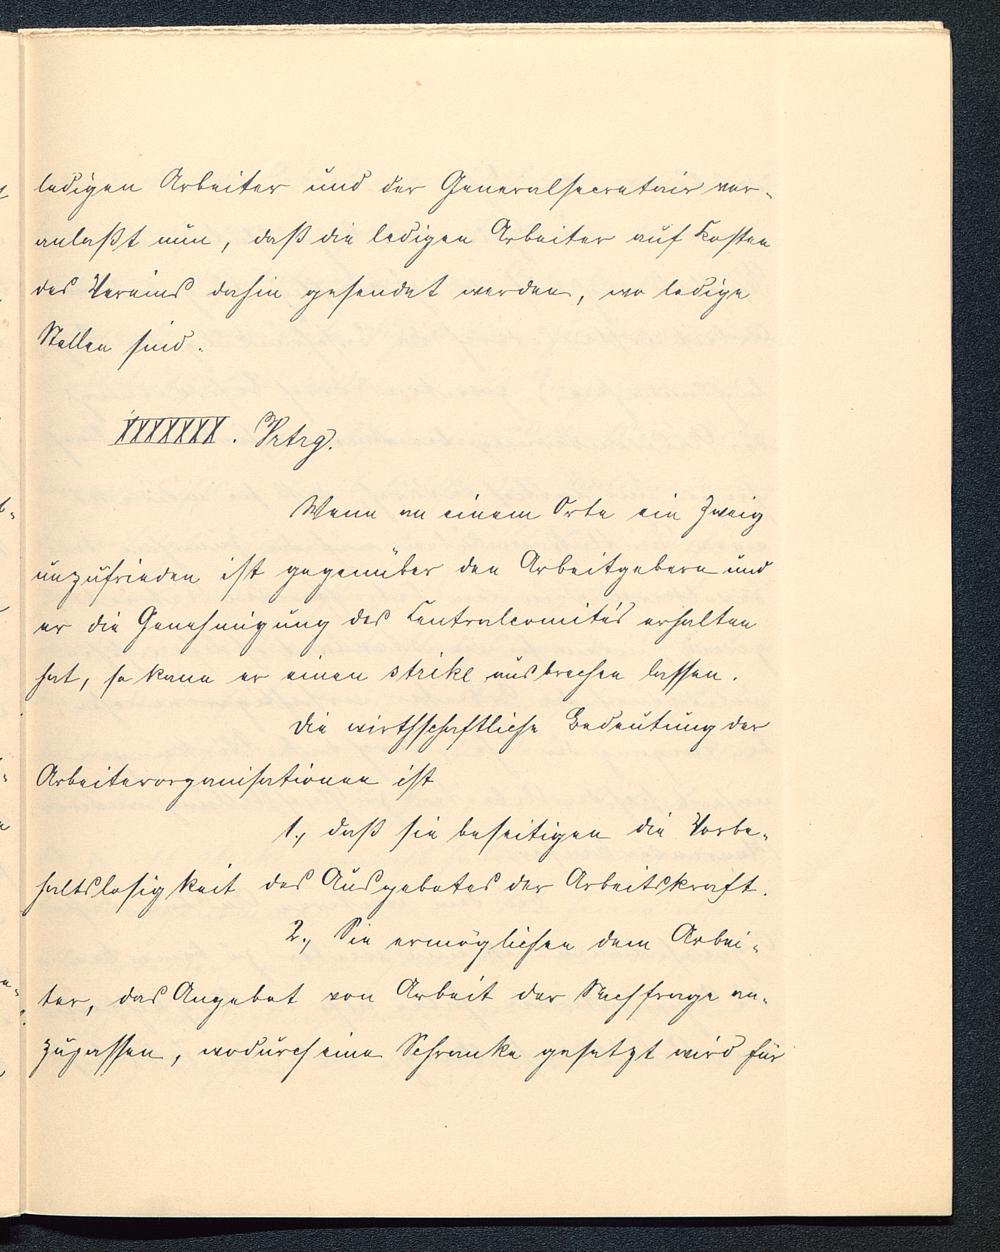 ledigen Arbeiter und der Generalsecretair ver-
anlaßt nun, daß die ledigen Arbeiter auf Kosten
des Vereins dahin gesendet werden, wo ledige
Stellen sind.
XXXXXXX. Vrtrg.
Wenn an einem Orte ein Zweig
unzufrieden ist gegenüber den Arbeitgebern und
er die Genehmigung des Centralcomités erhalten
hat, so kann er einen strike ausbrechen lassen.
Die wirthschaftliche Bedeutung der
Arbeiterorganisationen ist
1., daß sie beseitigen die Vorbe-
haltslosigkeit des Ausgebotes der Arbeitskraft.
2., Sie ermöglichen dem Arbei-
ter, das Angebot von Arbeit der Nachfrage an-
zupassen, wodurch eine Schranke gesetzt wird für